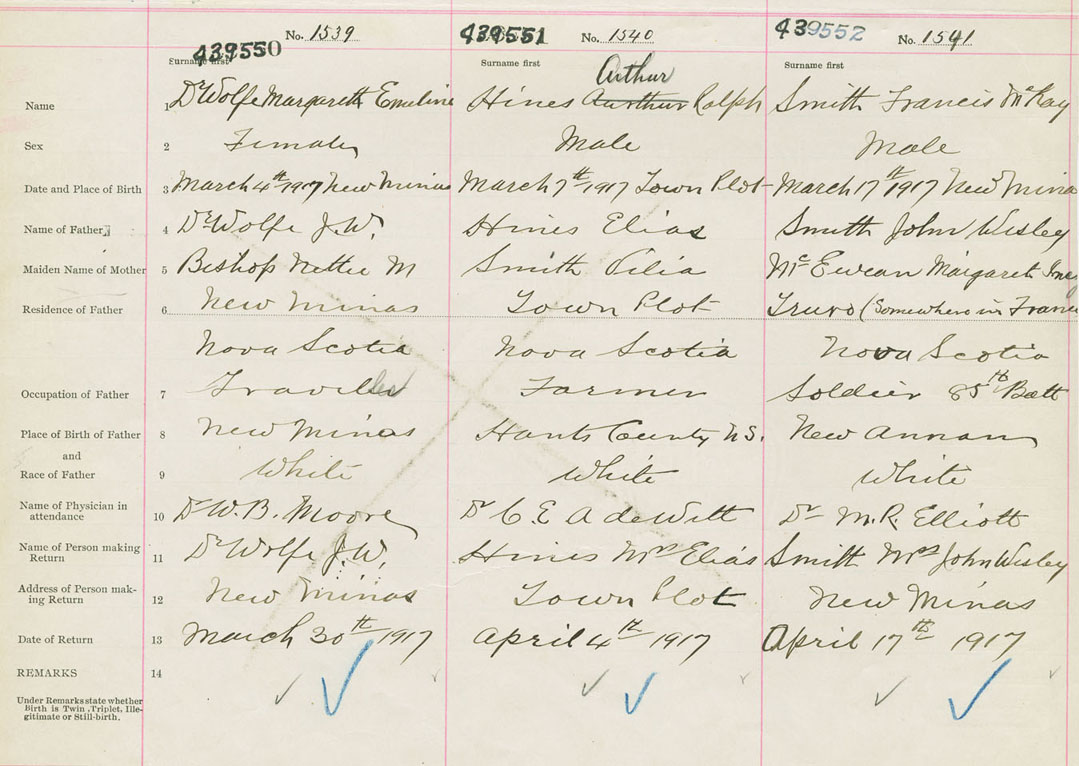 439550 No. 1539 439551 No. 1540 439552 No. 1541
Surname first Surname first Surname first
Arthur
Name 1 DeWolfe Margareth Emeline Hines Aurthur Ralph Smith Francis McKay
Sex 2 Female Male Male
Date and Place of Birth 3 March 4th 1917 New Minas March 7th 1917 Town Plot March 17th 1917 New Mina
Name of Father 4 DeWolfe J.W. Hines Elias Smith John Wesley
Maiden Name of Mother 5 Bishop Nettie M Smith McEwean Margaret
Residence of Father 6 New Minas Town Plot Truro (Somewhere in France
Nova Scotia Nova Scotia Nova Scotia
Occupation of Father 7 Traveller Farmer Soldier 85th Batt
Place of Birth of Father 8 New Minas Hants County N.S. New Annan
and
Race of Father 9 White White White
Name of Physician in
attendance 10 Dr W. B. Moore Dr C E A deWitt Dr M. R. Elliott
Name of Person making
Return 11 DeWolfe J.W. Hines Mrs Elias Smith Mrs John Wesley
Address of Person mak-
ing Return 12 New Minas Town Plot New Minas
Date of Return 13 March 30th 1917 April 4th 1917 April 17th 1917
REMARKS 14
Under Remarks state whether
Birth is Twin, Triplet, Ille-
gitimate or Still-birth.